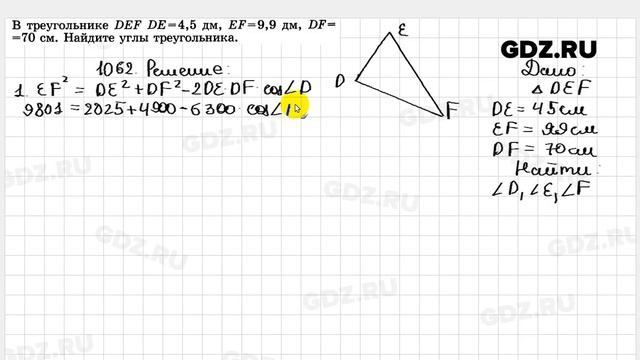 В треугольнике DEF DE=4,5 дм, EF=9,9 дм, DF=
=70 см. Найдите углы треугольника.
1062. Решение:
1. EF² = DE² + DF² - 2DE·DF·cos∠D
9801 = 2025 + 4900 - 6300·cos∠
D
E
F
GDZ.RU
Дано:
△ DEF
DE = 45 см
EF = 99 см
DF = 70 см
Найти:
∠D, ∠E, ∠F
GDZ.RU
GDZ.RU
GDZ.RU
GDZ.RU
GDZ.RU